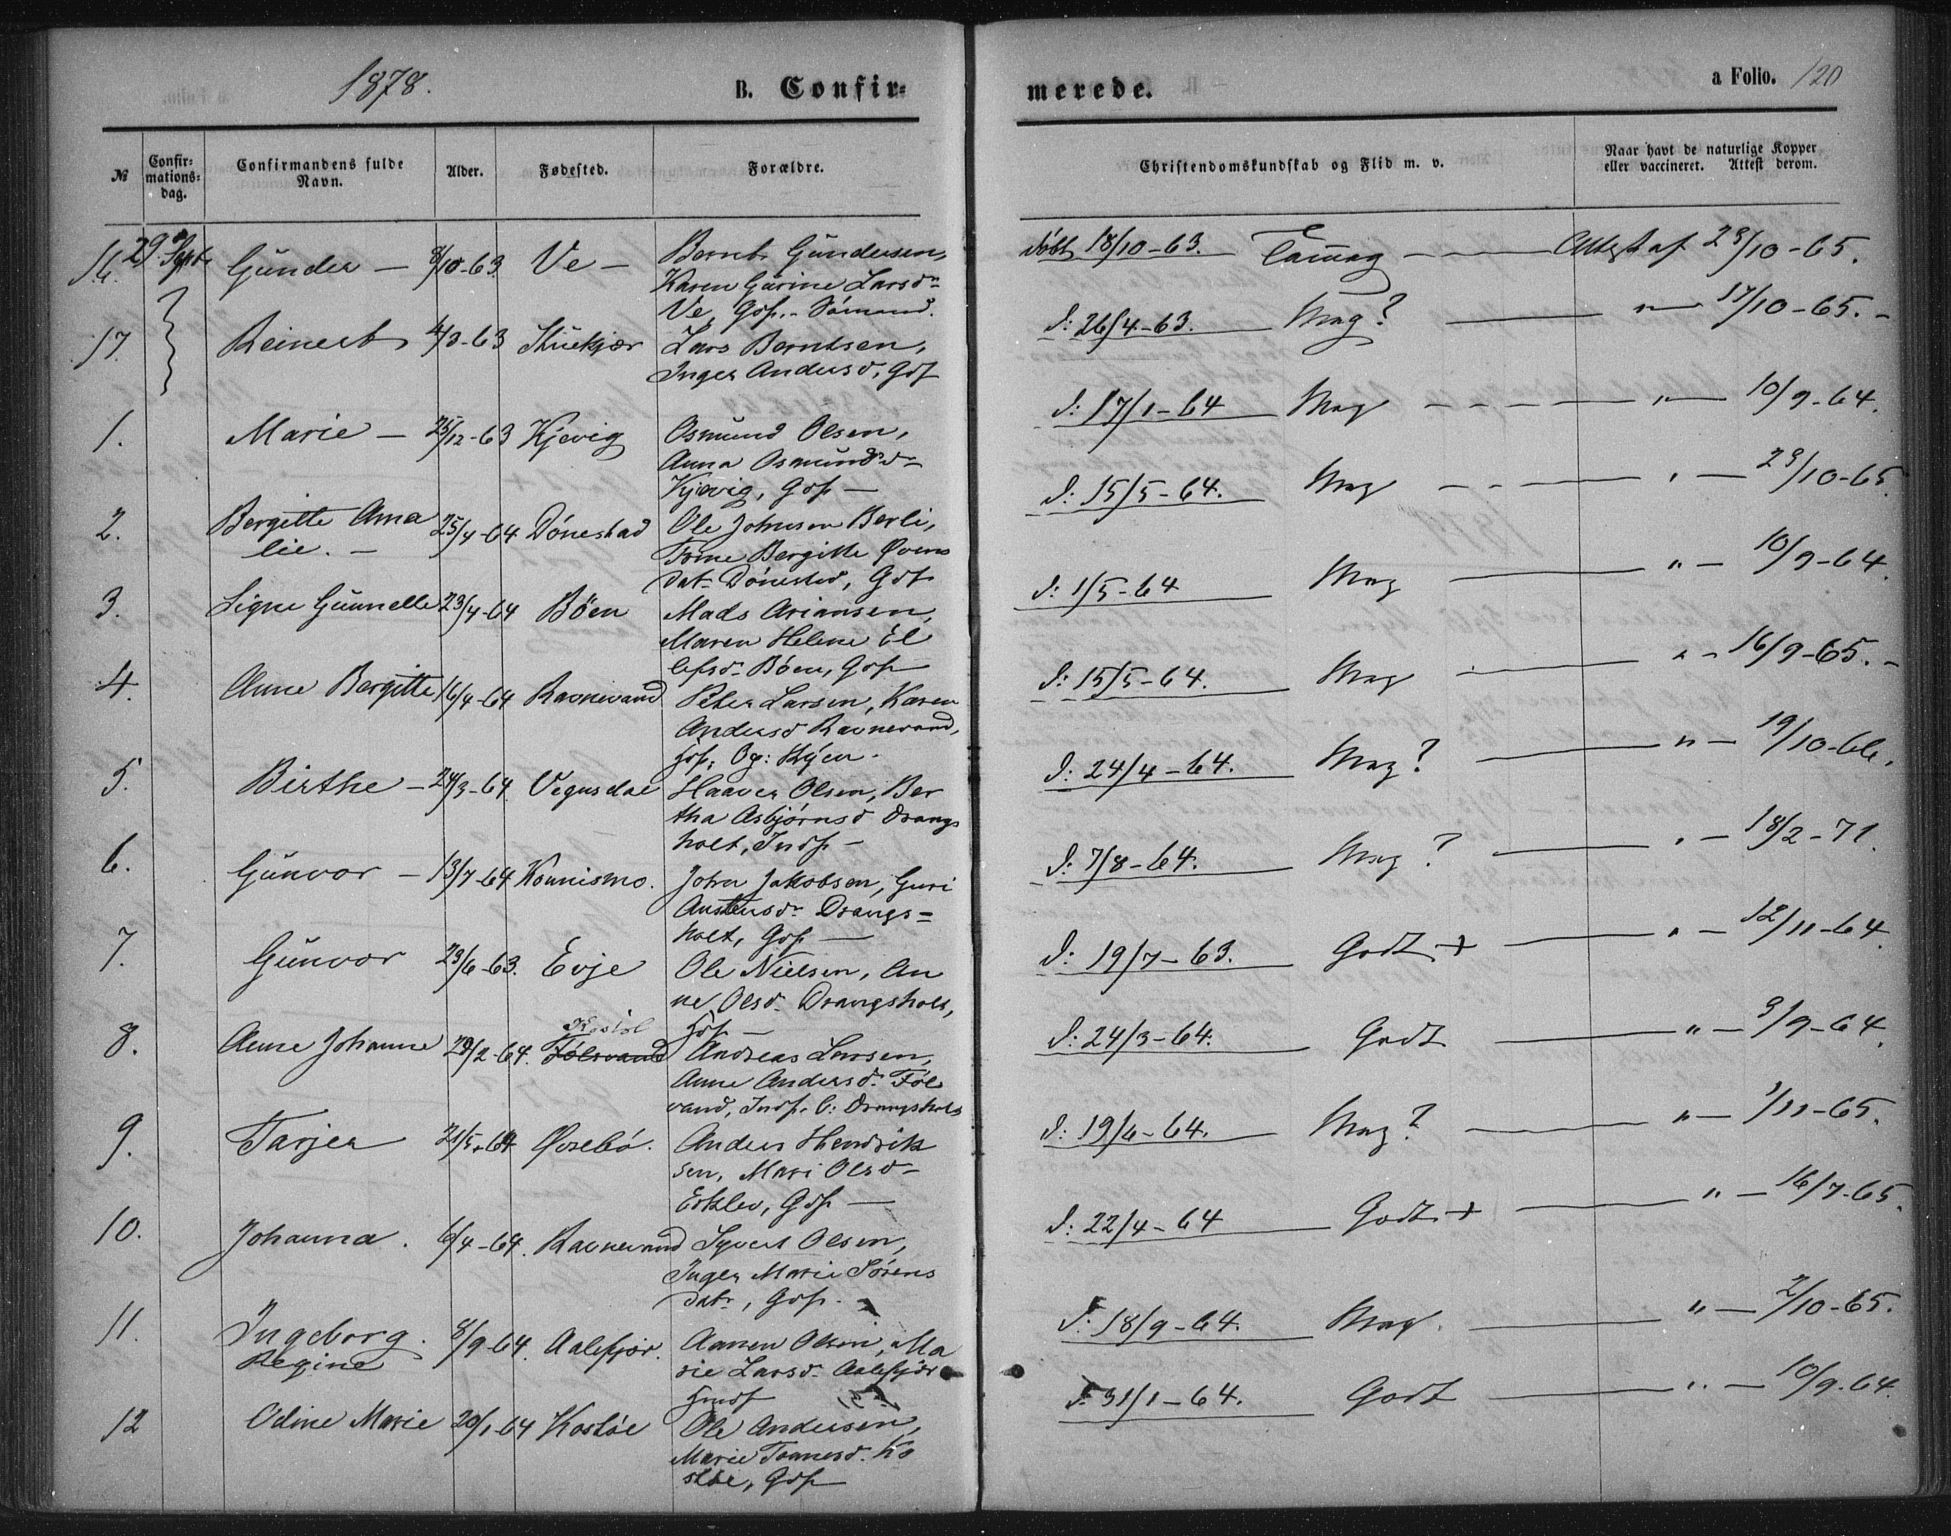 1878.
B. Confir=
№
Confir=
mations=
dag.
Confirmandens fulde
Navn.
Alder.
Fødested.
Forældre.
16. 29 Sept. Gunder — 8/10-63 Ve — Bernt Gundersen,
Karen Gurine Larsdr
Ve, Gdf. - Sømand.
17. Reinert 4/3-63 Stuekjær Lars Berntsen,
Inger Andersd, Gdf
1. Marie — 25/12-63 Kjevig Osmund Olsen,
Anna Osmundsdr
Kjevig, Gdf —
2. Bergitte Ama 25/4-64 Dønestad Ole Johnsen Berli,
lie. — Tome Bergitte Øvens
dat. Dønestad, Gdf
3. Signe Gunnelle 23/4-64 Bøen Mads Ariansen,
Maren Helene El
lefsd. Bøen, Gdf —
4. Anne Bergitte 16/4-64 Ravnevand Peter Larsen, Karen
Andersd Ravnevand,
Gdf;
5. Birthe — 24/3-64. Vegusdal Haaver Olsen, Ber
tha Asbjørnsd Drangs
holt, Indf —
6. Gunvor — 13/7-64 Konnismo. John Jakobsen, Guri
Austensdr Drangs=
holt, Gdf —
7. Gunvor 23/6-63. Evje Ole Nielsen, An
ne Olsd. Drangsholt,
Gdf —
8. Anne Johanne 29/2-64. Følsvand Andreas Larsen,
Anne Andersd. Føls
vand, Indf. b: Drangsholt
9. Tarjer 21/5-64 Øvrebø. Anders Hendrik
sen, Mari Olsd-
Erklev, Gdf —
10. Johanna. 6/4-64. Ravnevand Syvert Olsen,
Inger Marie Sørens
datr, Gdf.
11. Ingeborg. 8/9-64. Aalefjør. Aanen Olsen, Ma
Regine rie Larsd. Aalefjør
Gmdf
12 Odine Marie 20/1-64 Kostøe Ole Andersen,
Marie Tomesd. Ko
støe, Gdf —
merede.
a Folio. 120
Christendomskundskab og Flid m. v.
Naar havt de naturlige Kopper
eller vaccineret. Attest derom.
døbt 18/10-63. Tammag — Attest af 23/10-65.
d: 26/4-63. Mag? — " — 17/10-65. -
d: 17/1-64 Mag — " — 10/9-64.
d: 15/5-64. Mag — " — 23/10-65.
d: 1/5-64 Mag — " — 10/9-64.
d: 15/5-64. Mag — " — 16/9-65. -
d: 24/4-64. Mag? — " — 19/10-66.
d: 7/8-64. Mag? — " — 18/2-71.
d: 19/7-63. Godt + — " — 12/11-64.
d: 24/3-64. Godt — " — 3/9-64.
d: 19/6-64. Mag? — " — 1/11-65.
d: 22/4-64 Godt + — " — 16/7-65.
d: 18/9-64. Mag. — " — 2/10-65.
d: 31/1-64. Godt — " — 10/9-64.